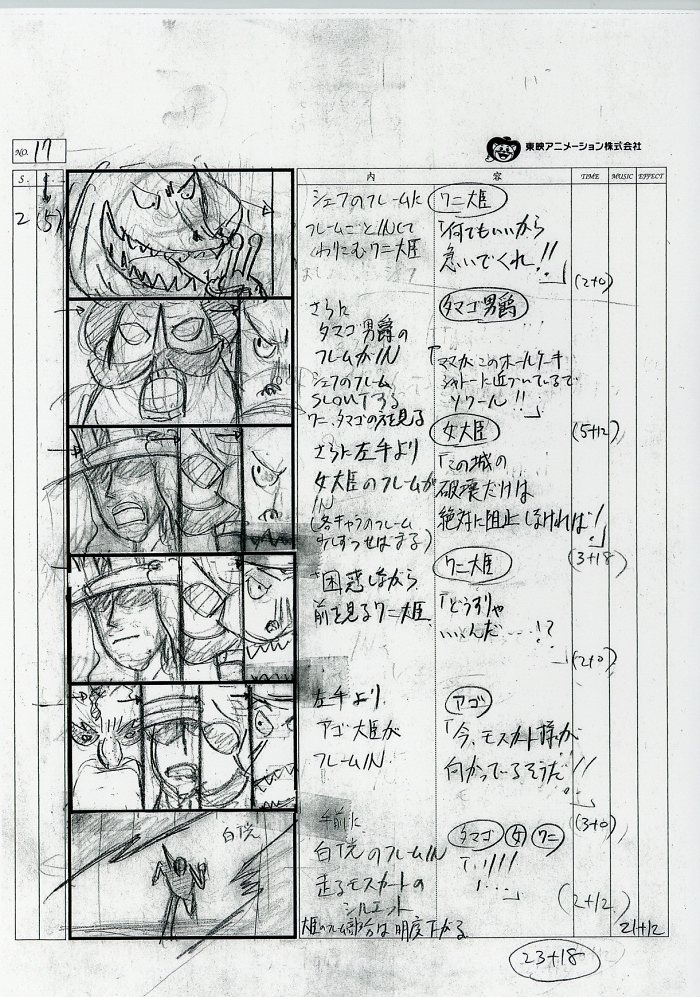 NO. 17
東映アニメーション株式会社
S. C. 内 容 TIME MUSIC EFFECT
2 (5)
シェフのフレームに
フレームごとINして
くわりこむワニ大臣
ワニ大臣
「何でもいいから
急いでくれ!!」
(2+0)
さらに
タマゴ男爵の
フレームがIN
シェフのフレーム
SLOUTする
ワニ、タマゴの方を見る
タマゴ男爵
「ママがこのホールケーキ
シャトーに近づいているで
ソワール!!」
(5+12)
さらに左手より
女大臣のフレームが
IN
(各キャラのフレーム
少しずつせばまる)
女大臣
「この城の
破壊だけは
絶対に阻止しなければ!」
(3+18)
困惑しながら
前を見るワニ大臣
ワニ大臣
「どうすりゃ
いいんだ…!?」
(2+0)
左手より
アゴ大臣が
フレームIN
アゴ
「今、モスカート様が
向かっているそうだ!!」
(3+0)
白優
手前に
のフレームIN
走るモスカートの
シルエット
大臣のフレーム部分は明度下がる
タマゴ 女 ワニ
「!!!
!…」
(2+12)
21+12
23+18